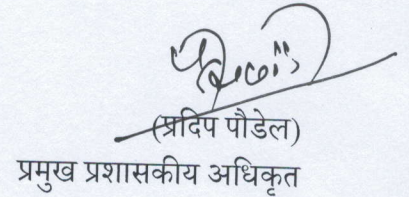 (प्रदिप पौडेल)
प्रमुख प्रशासकीय अधिकृत